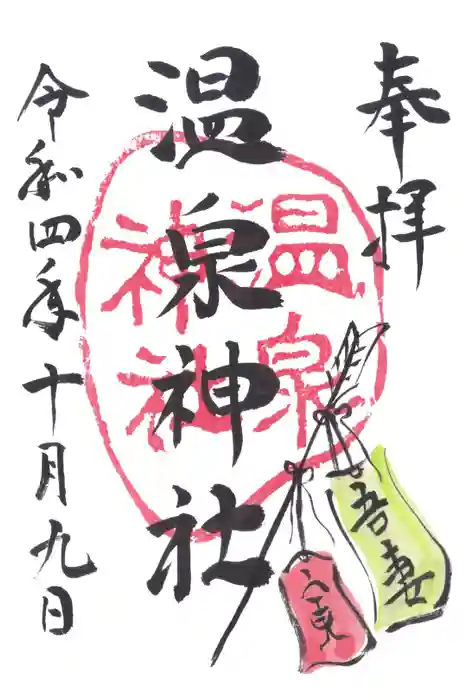 奉拝
温泉神社
温泉
神社
令和四年十月九日
吾妻